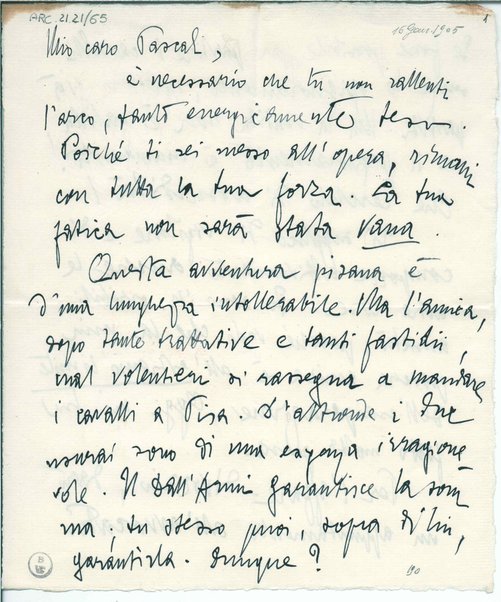 ARC. 21 21/65
16 Genn. 1905
1
Mio caro Pascoli,
è necessario che tu non rallenti
l'arco, tanto energicamente teso.
Poiché ti sei messo all'opera, rimani
con tutta la tua forza. La tua
fatica non sarà stata vana.
Questa avventura pisana è
d'una lunghezza intollerabile. Ma l'amica,
dopo tante trattative e tanti fastidii,
mal volentieri si rassegna a mandare
i cavalli a Pisa. D'altronde i due
usurai sono di una esigenza irragione
vole. Il Dall'Armi garantisce la som
ma, tu stesso puoi, sopra di lui,
garantirla. Dunque?
B
190